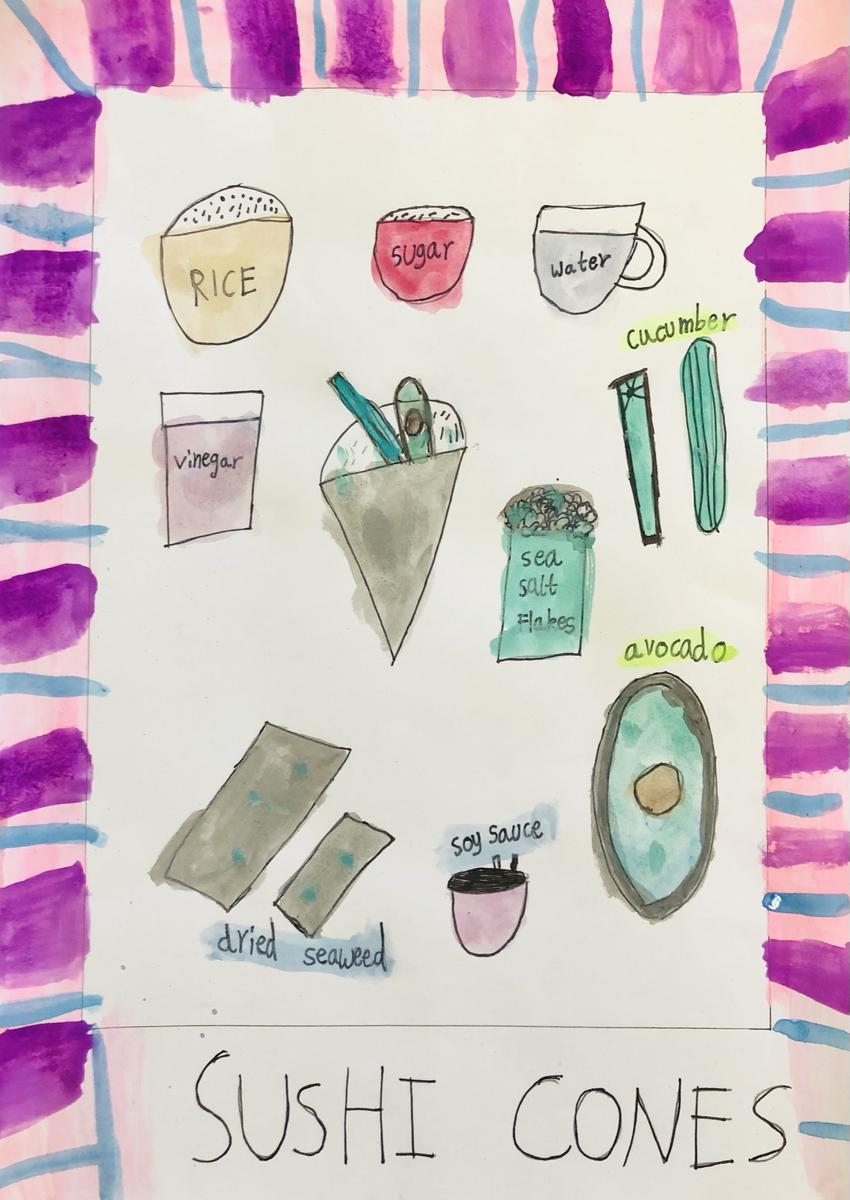 RICE
sugar
water
cucumber
vinegar
sea
salt
Flakes
avocado
soy sauce
dried seaweed
SUSHI CONES